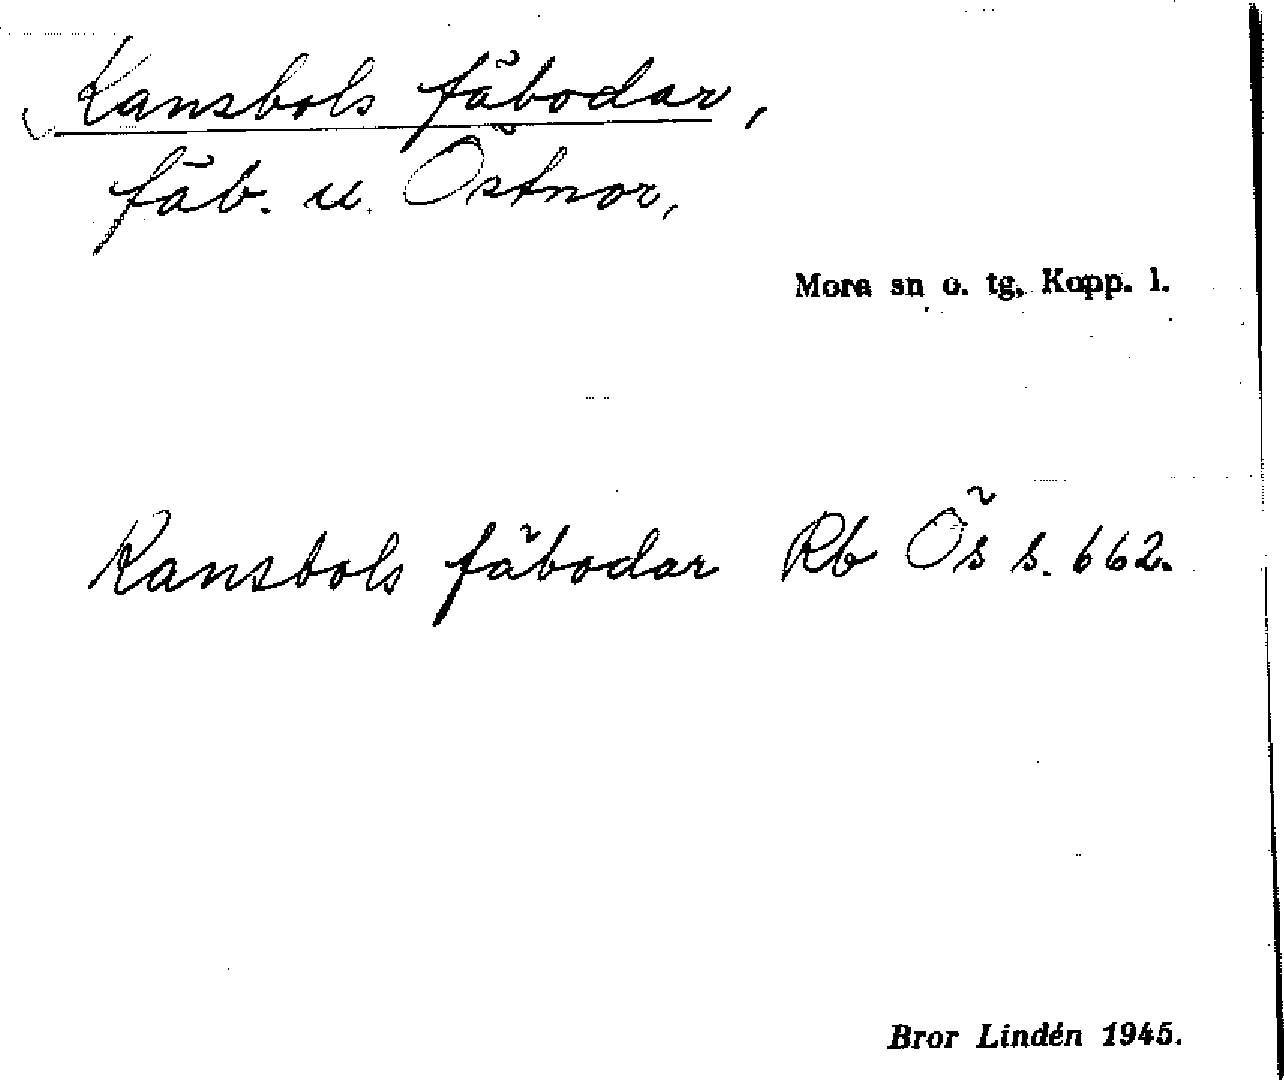 Kansbols fäbodar,
fäb. u. Östnor,
Mora sn o. tg, Kopp. l.
Kansbols fäbodar Rb Ös s. 662.
Bror Lindén 1945.